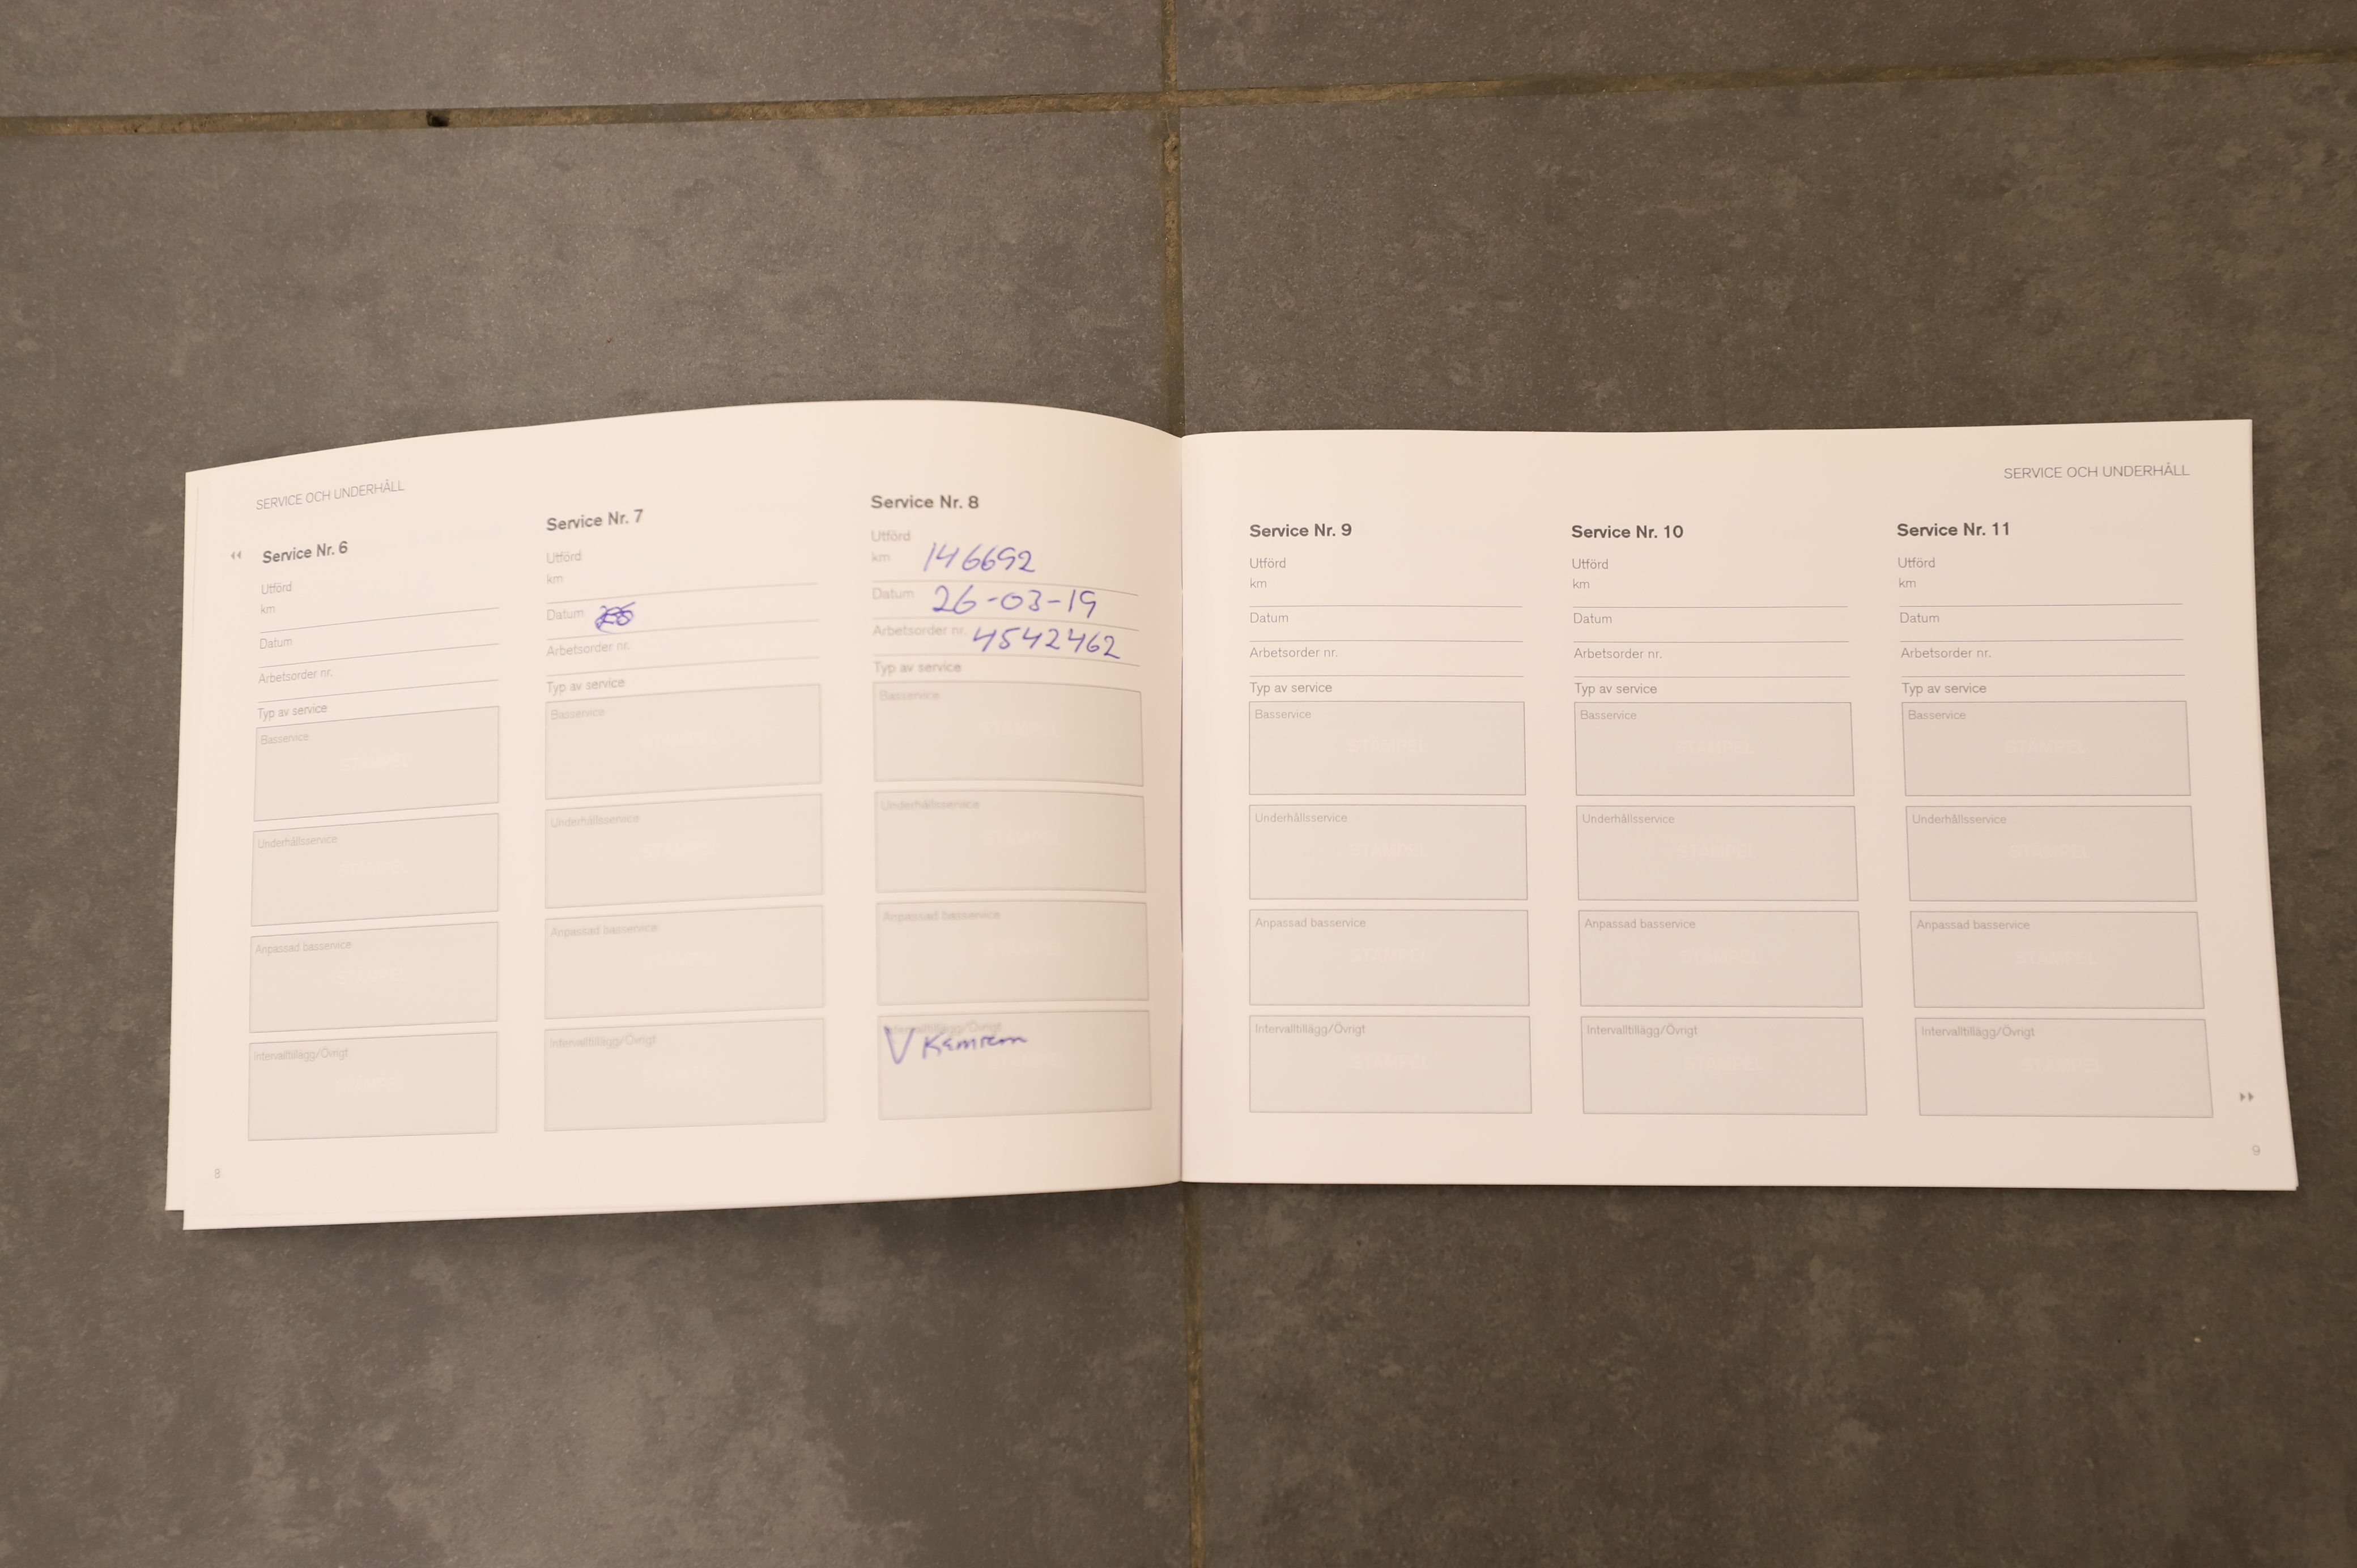 SERVICE OCH UNDERHÅLL
Service Nr. 6
Utförd
km
Datum
Arbetsorder nr.
Typ av service
Basservice
STÄMPEL
Underhållsservice
STÄMPEL
Anpassad basservice
STÄMPEL
Intervalltillägg/Övrigt
STÄMPEL
8
Service Nr. 7
Utförd
km
Datum
Arbetsorder nr.
Typ av service
Basservice
STÄMPEL
Underhållsservice
STÄMPEL
Anpassad basservice
STÄMPEL
Intervalltillägg/Övrigt
STÄMPEL
Service Nr. 8
Utförd
km 146692
Datum 26-03-19
Arbetsorder nr. 4542462
Typ av service
Basservice
STÄMPEL
Underhållsservice
STÄMPEL
Anpassad basservice
STÄMPEL
Intervalltillägg/Övrigt
V Kamrem
STÄMPEL
SERVICE OCH UNDERHÅLL
Service Nr. 9
Utförd
km
Datum
Arbetsorder nr.
Typ av service
Basservice
STÄMPEL
Underhållsservice
STÄMPEL
Anpassad basservice
STÄMPEL
Intervalltillägg/Övrigt
STÄMPEL
Service Nr. 10
Utförd
km
Datum
Arbetsorder nr.
Typ av service
Basservice
STÄMPEL
Underhållsservice
STÄMPEL
Anpassad basservice
STÄMPEL
Intervalltillägg/Övrigt
STÄMPEL
Service Nr. 11
Utförd
km
Datum
Arbetsorder nr.
Typ av service
Basservice
STÄMPEL
Underhållsservice
STÄMPEL
Anpassad basservice
STÄMPEL
Intervalltillägg/Övrigt
STÄMPEL
9